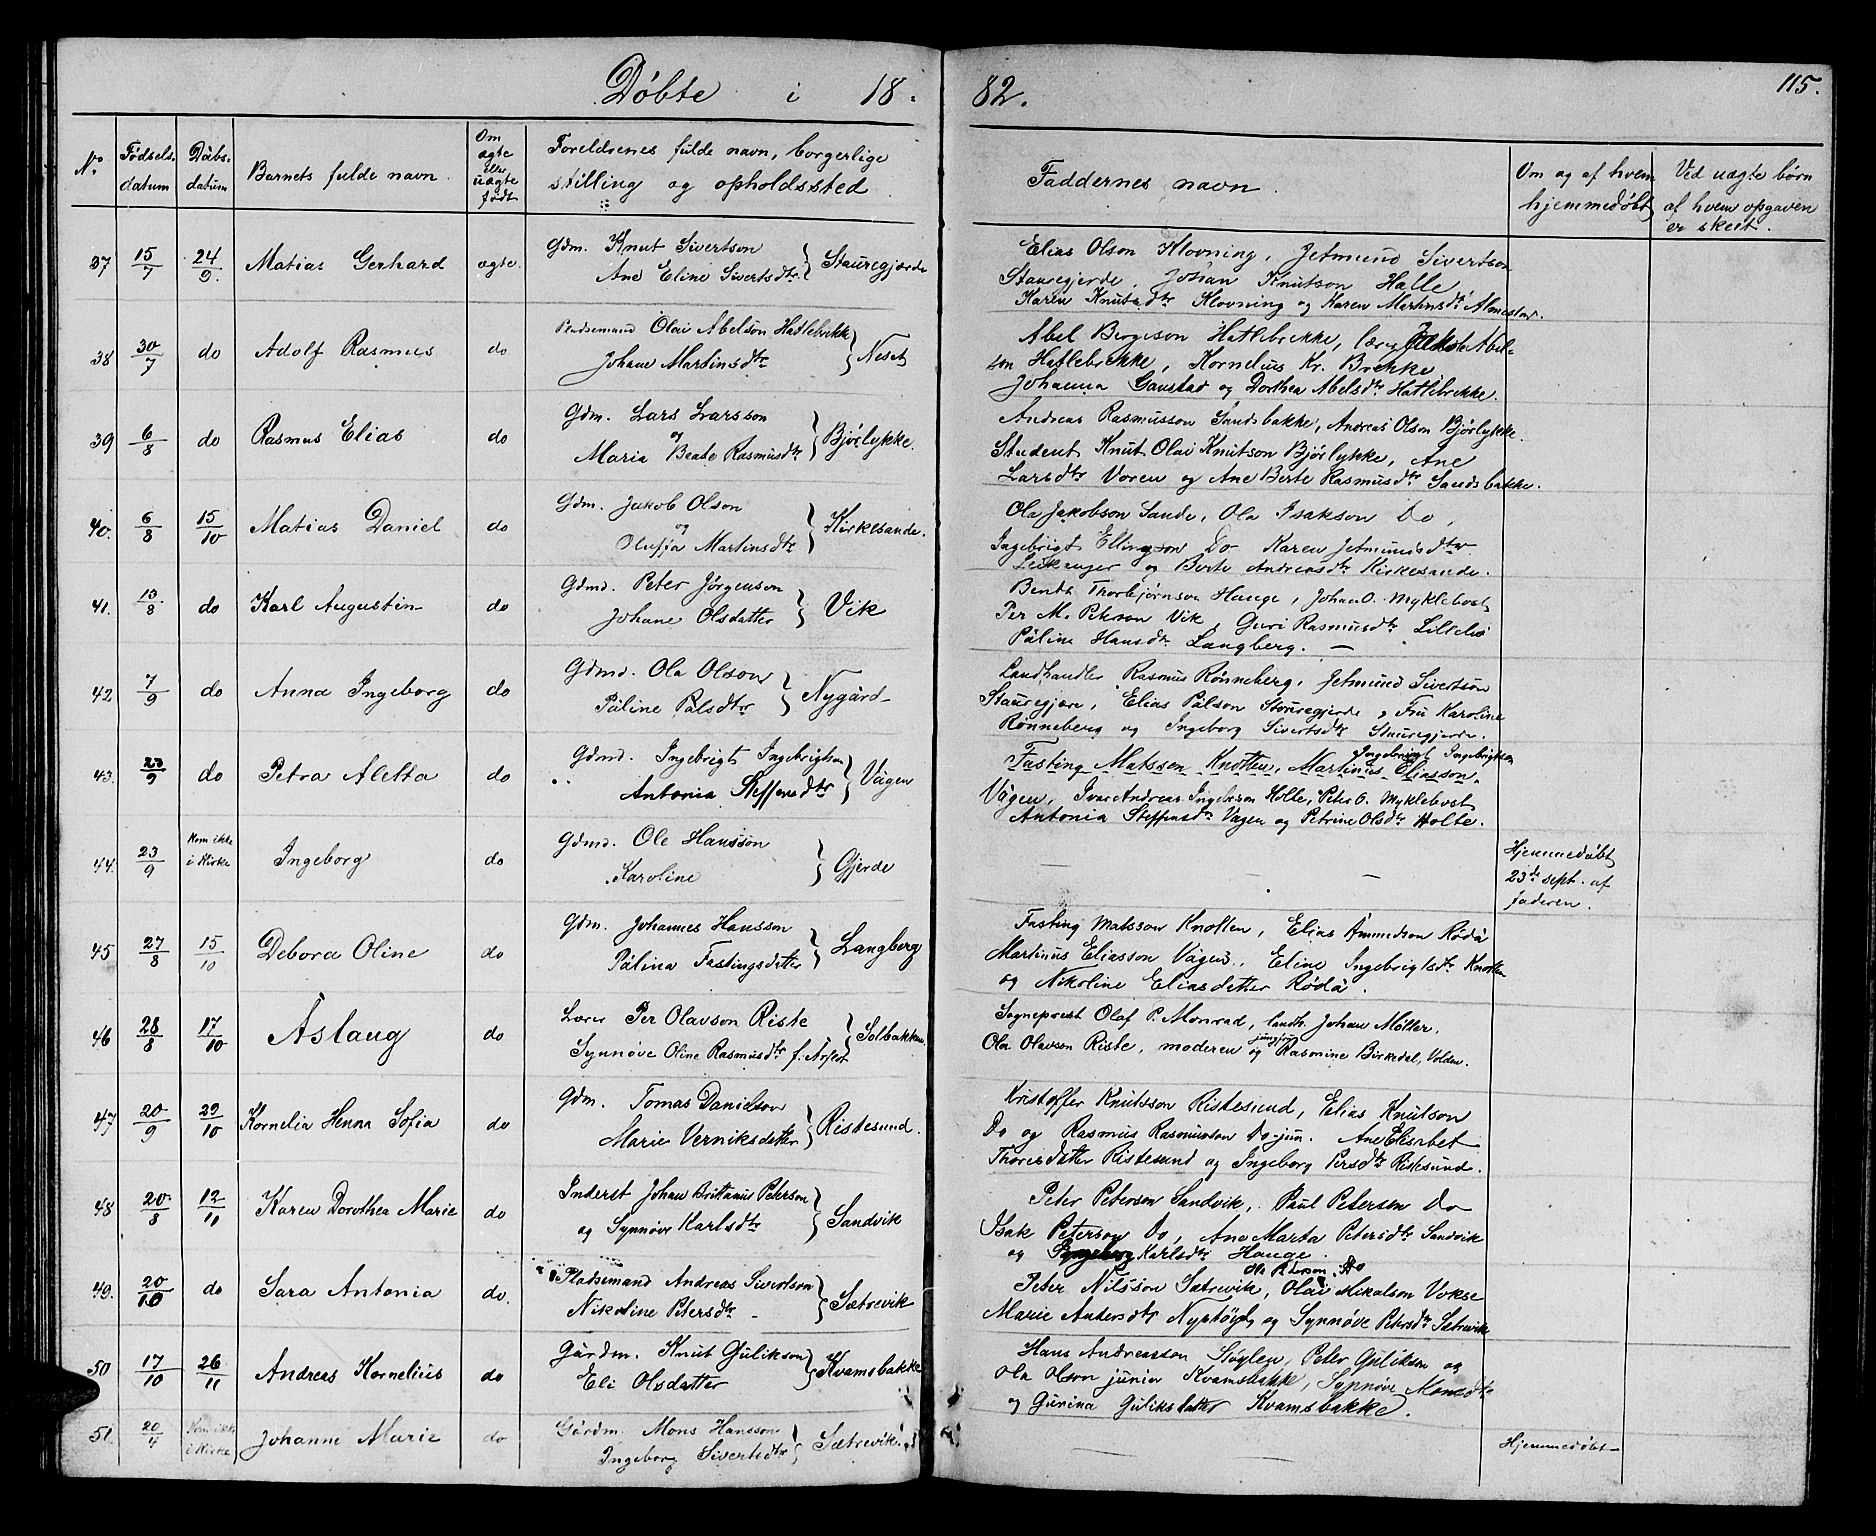 Døbte i 18
82.
115.
No
Fødsels-
datum
Dåbs-
datum
Barnets fulde navn.
Om
ægte
eller
uægte
født
Foreldrenes fulde navn, borgerlige
stilling og opholdssted
Faddernes navn.
Om og af hvem
hjemmedøbt
Ved uægte børn
af hvem opgaven
er skeet.
37 15/7 24/9. Matias Gerhard ægte. Gdm. Knut Sivertson
Ane Eline Sivertsdtr } Stauregjærde
Elias Olson Klovning, Jetmund Sivertson
Stauregjerde, Johan Knutson Halle
Karen Knutsdtr Klovning og Karen Martinsdtr Almestad.
38 30/7 do Adolf Rasmus do Pladsemand Olai Abelson Hatlebrekke
Johane Martinsdtr } Neset
Abel Bergeson Hatlebrekke, Abel-
son Hatlebrekke, Kornelius Kr. Brekke
Johanna Gaustad og Dorthea Abelsdtr Hatlebrekke.
39 6/8 do Rasmus Elias do Gdm. Lars Larsson
og
Maria Beate Rasmusdtr } Bjørlykke.
Andreas Rasmusson Sandsbakke, Andreas Olson Bjørlykke.
Student Knut Olai Knutson Bjørlykke, Ane
Larsdtr Voren og Ane Berte Rasmusdtr Sandsbakke.
40. 6/8 15/10 Matias Daniel do Gdm. Jakob Olson
og
Olufia Martinsdtr } Kirkesande.
Ola Jakobson Sande, Ola Isakson Do,
Ingebrigt Ellingson Do Karen Jetmundsdtr
Leikanger og Berte Andreasdtr Kirkesande.
41. 13/8 do Karl Augustin do Gdmd. Peter Jørgenson
Johane Olsdatter } Vik
Bent Thorbjørnson Hauge, Johan O. Myklebost
Per M. Peterson Vik, Guri Rasmusdtr Lillebø
Påline Hansdtr Langberg. —
42 7/9 do Anna Ingeborg do Gdmd. Ola Olson
Påline Pålsdtr } Nygård
Landhandler Rasmus Rønneberg, Jetmund Sivertson
Stauregjære, Elias Pålson Stauregjerde, Fru Karoline
Rønneberg og Ingeborg Sivertsdtr Stauregjerde.
43. 23/9 do Petra Aletta do Gdmd. Ingebrigt Ingebrigtson
Antonia Steffensdtr } Vågen
Ingebrigt Ingebrigtson
Fasting Matssen Knotten, Martinus Eliasson,
Vågen, Ivar Andreas Ingebrigtson Holte, Peter O. Myklebost
Antonia Steffensdtr Vågen og Petrine Olsdtr Holte.
44. 23/9 Kom ikke
i Kirke Ingeborg do Gdmd. Ole Hansson
Karoline } Gjerde
— — —
Hjemmedøbt
23de sept. af
faderen.
45 27/8 15/10 Debora Oline do Gdm. Johannes Hansson
Pålina Fastingsdatter } Langberg
Fasting Matsson Knotten, Elias Åmundson Rødå
Martinus Eliasson Vågen, Eline Ingebrigtsdtr Knotten
og Nikoline Eliasdatter Rødå.
46 28/8 17/10 Åslaug do Lærer Per Olavson Riste
Synnøve Oline Rasmusdtr f. Årflot } Solbakken
Sogneprest Olaf P. Monrad, landh. Johan Møller,
Ola Olavson Riste, moderen og jomfru Rasmine Birkedal, Volden.
47 20/9 29/10 Kornelia Henna Sofia do Gdm. Tomas Danielson
Marie Verniksdatter } Ristesund.
Kristoffer Knutsson Ristesund, Elias Knutson
Do og Rasmus Rasmusson Do jun. Ane Elisabet
Thoresdatter Ristesund og Ingeborg Persdtr Ristesund.
48 20/8 12/11 Karen Dorothea Marie do Inderst Johan Brittanus Peterson
og Synnøve Karlsdtr } Sandvik
Peter Peterson Sandvik, Paul Peterson Do
Isak Peterson Do, Ane Marta Petersdtr Sandvik
og Ingeborg Karlsdtr Hauge.
49. 20/10 do Sara Antonia do. Pladsemand Andreas Sivertson
Nikoline Petersdtr - } Sætrevik
Ole Peterson Do
Peter Nilsson Sætrevik, Olai Mikalson Vokse
Marie Andersdtr Nyrtøyt og Synnøve Petersdtr Sætrevik
50 17/10 26/11 Andreas Kornelius do Gårdm. Knut Gulikson
Eli Olsdatter } Kvamsbakke
Hans Andreasson Støylen, Peter Gulikson og
Ola Olson junior Kvamsbakke, Synnøve Monsdtr
og Gurina Guliksdatter Kvamsbakke.
51. 20/4 Kom ikke
i Kirke Johanne Marie do Gårdm. Mons Hansson
Ingeborg Sivertsdtr } Sætrevik.
— —
Hjemmedøbt